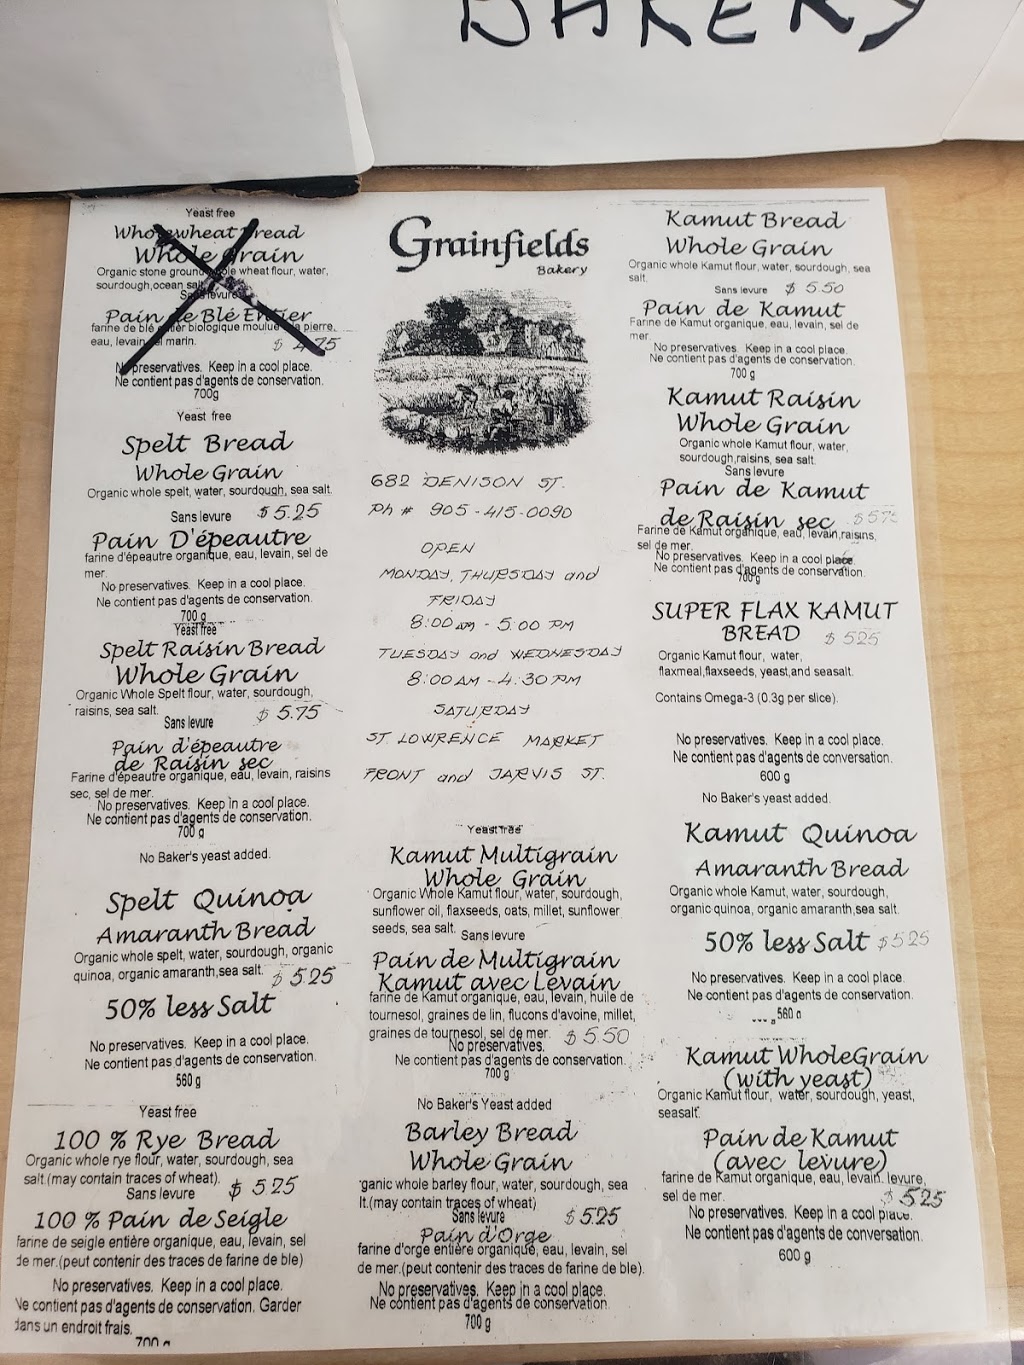 BAKERY
Yeast free
Wholewheat Bread
Whole Grain
Organic stone ground whole wheat flour, water,
sourdough,ocean salt
Sans levure
Pain de Blé Entier
farine de blé entier biologique moulue a pierre,
eau, levain, sel marin. $ 4.75
No preservatives. Keep in a cool place.
Ne contient pas d'agents de conservation.
700g
Yeast free
Spelt Bread
Whole Grain
Organic whole spelt, water, sourdough, sea salt.
Sans levure $5.25
Pain D'épeautre
farine d'épeautre organique, eau, levain, sel de
mer.
No preservatives. Keep in a cool place.
Ne contient pas d'agents de conservation.
700 g
Yeast free
Spelt Raisin Bread
Whole Grain
Organic Whole Spelt flour, water, sourdough,
raisins, sea salt.
Sans levure $ 5.75
Pain d'épeautre
de Raisin sec
Farine d'épeautre organique, eau, levain, raisins
sec, sel de mer.
No preservatives. Keep in a cool place.
Ne contient pas d'agents de conservation.
700 g
No Baker's yeast added.
Spelt Quinoa
Amaranth Bread
Organic whole spelt, water, sourdough, organic
quinoa, organic amaranth,sea salt. $ 5.25
50% less Salt
No preservatives. Keep in a cool place.
Ne contient pas d'agents de conservation.
560 g
Yeast free
100 % Rye Bread
Organic whole rye flour, water, sourdough, sea
salt.(may contain traces of wheat).
Sans levure $ 5.25
100 % Pain de Seigle
farine de seigle entière organique, eau, levain, sel
de mer.(peut contenir des traces de farine de ble)
No preservatives. Keep in a cool place.
Ne contient pas d'agents de conservation. Garder
dans un endroit frais.
700 g
Grainfields
Bakery
682 DENISON ST.
Ph # 905-415-0090
OPEN
MONDAY, THURSDAY and
FRIDAY
8:00 am - 5:00 PM
TUESDAY and WEDNESDAY
8:00 AM - 4:30 PM
SATURDAY
ST. LOWRENCE MARKET
FRONT and JARVIS ST.
Yeast free
Kamut Multigrain
Whole Grain
Organic Whole Kamut flour, water, sourdough,
sunflower oil, flaxseeds, oats, millet, sunflower
seeds, sea salt. Sans levure
Pain de Multigrain
Kamut avec Levain
farine de Kamut organique, eau, levain, huile de
tournesol, graines de lin, flucons d'avoine, millet,
graines de tournesol, sel de mer. $ 5.50
No preservatives.
Ne contient pas d'agents de conservation.
700 g
No Baker's Yeast added
Barley Bread
Whole Grain
ganic whole barley flour, water, sourdough, sea
lt.(may contain traces of wheat)
Sans levure $5.25
Pain d'Orge
farine d'orge entière organique, eau, levain, sel
de mer.(peut contenir des traces de farine de ble).
No preservatives. Keep in a cool place.
Ne contient pas d'agents de conservation.
700 g
Kamut Bread
Whole Grain
Organic whole Kamut flour, water, sourdough, sea
salt.
Sans levure $ 5.50
Pain de Kamut
Farine de Kamut organique, eau, levain, sel de
mer.
No preservatives. Keep in a cool place.
Ne contient pas d'agents de conservation.
700 g
Kamut Raisin
Whole Grain
Organic whole Kamut flour, water,
sourdough,raisins, sea salt.
Sans levure
Pain de Kamut
de Raisin sec $5.75
Farine de Kamut organique, eau, levain,raisins,
sel de mer.
No preservatives. Keep in a cool place.
Ne contient pas d'agents de conservation.
700 g
SUPER FLAX KAMUT
BREAD $ 5.25
Organic Kamut flour, water,
flaxmeal,flaxseeds, yeast,and seasalt.
Contains Omega-3 (0.3g per slice).
No preservatives. Keep in a cool place.
Ne contient pas d'agents de conversation.
600 g
No Baker's yeast added.
Kamut Quinoa
Amaranth Bread
Organic whole Kamut, water, sourdough,
organic quinoa, organic amaranth,sea salt.
50% less Salt $5.25
No preservatives. Keep in a cool place.
Ne contient pas d'agents de conservation.
560 g
Kamut WholeGrain
(with yeast)
Organic Kamut flour, water, sourdough, yeast,
seasalt.
Pain de Kamut
(avec levure)
farine de Kamut organique, eau, levain. levure,
sel de mer. $ 5.25
No preservatives. Keep in a cool place.
Ne contient pas d'agents de conversation.
600 g